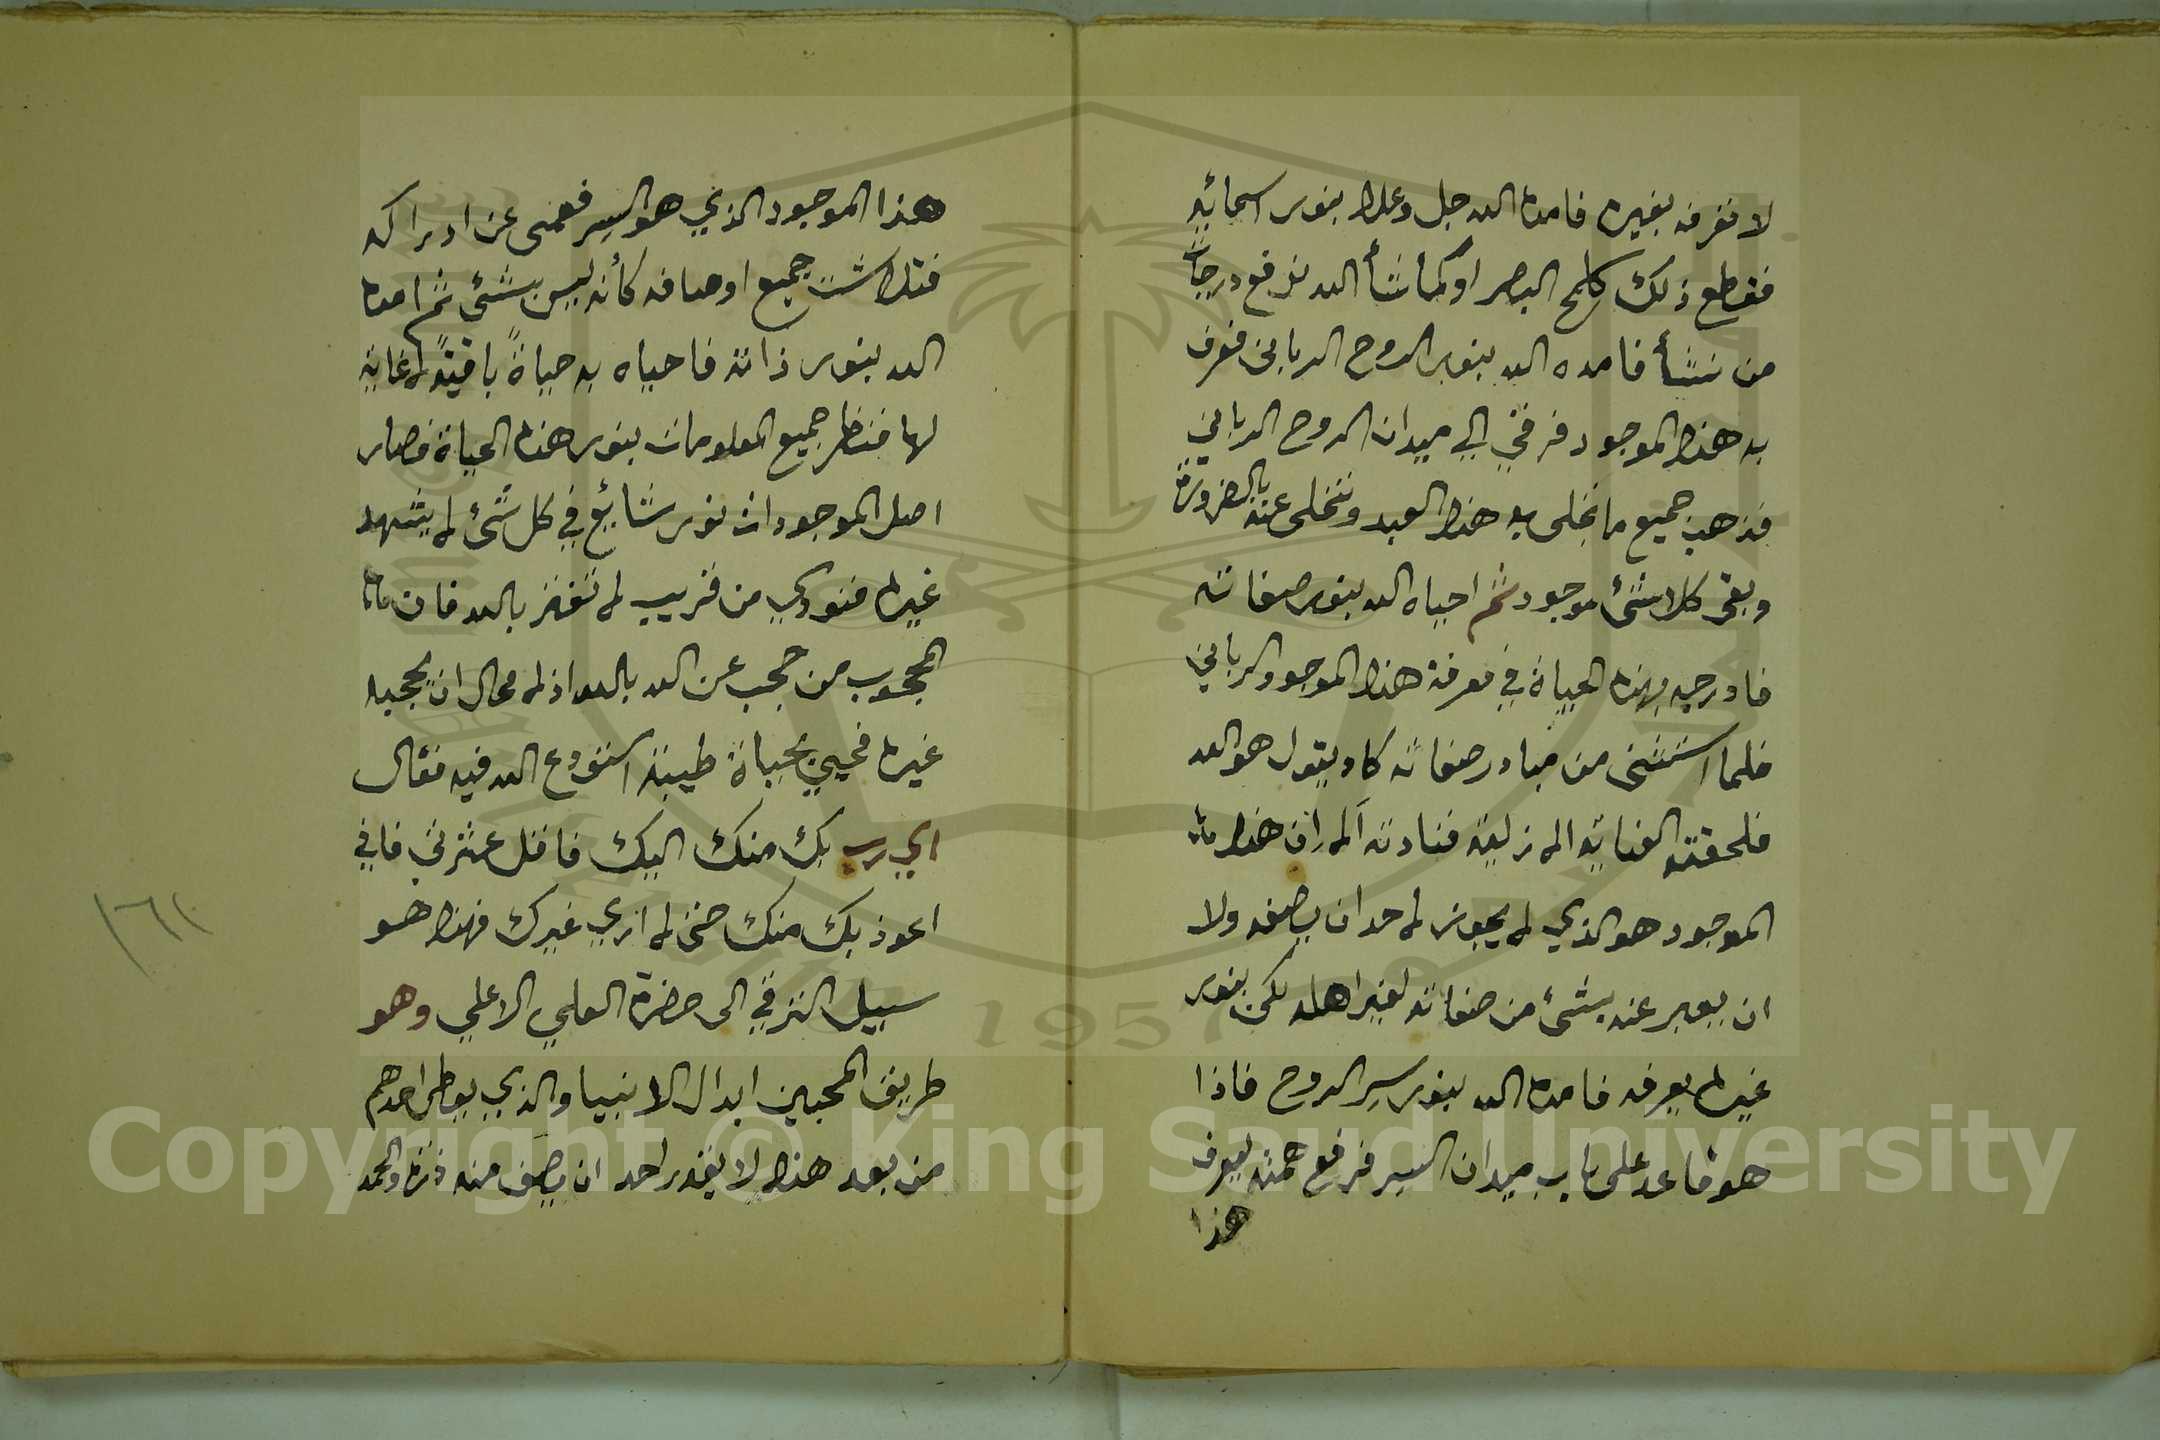 لا تعرفه بغيره فامده الله جل وعلا بنور اسمائه
فقطع ذلك كلمح البصر او كما شأ الله نرفع درجات
من نشأ فامده الله بنور الروح الرباني فعرف
به هذا الموجود فرقي الى ميدان الروح الرباني
فذهب جميع ما تحلى به هذا العبد وتخلى عنه بالضرورة
وبقى كلا شئ موجود ثم احياه الله بنور صفاته
فادرجه بهذه الحياة في معرفة هذا الموجود الرباني
فلما استنشق من مبادر صفاته كاد يقول هو الله
فلحقته العناية الازلية فنادته ألا ان هذا
الموجود هو الذي لا يجوز لاحد ان يصفه ولا
ان يعبر عنه بشئ من صفاته لغير اهله لكن بنور
غيره يعرفه فامده الله بنور سر الروح فاذا
هو قاعد على باب ميدان السر فرفع همته ليعرف
هذا
هذا الموجود الذي هو السر فعمى عن ادراكه
فتلاشت جميع اوصافه كأنه ليس بشئ ثم امده
الله بنور ذاته فاحياه به حياةً باقيةً لا غاية
لها فنظر جميع المعلومات بنور هذه الحياة فصار
اصل الموجودات نور شائع في كل شئ لا يشهد
غيره فنودي من قريب لا تغتر بالله فان
المحجوب من حجب عن الله بالله اذ لا محال ان يحجبه
غيره فحيي بحياة طيبة استودع الله فيه فقال
اي رب بك منك اليك فاقل عثرتي فاني
اعوذ بك منك حتى لا ارى غيرك فهذا هو
سبيل الترقي الى حضرة العلي الاعلي وهو
طريق المحبين ابدال الانبيا والذي يعطى احدهم
من بعد هذا لا يقدر احد ان يصف منه ذرة والحمد
١٦٢
Copyright © King Saud University
1957